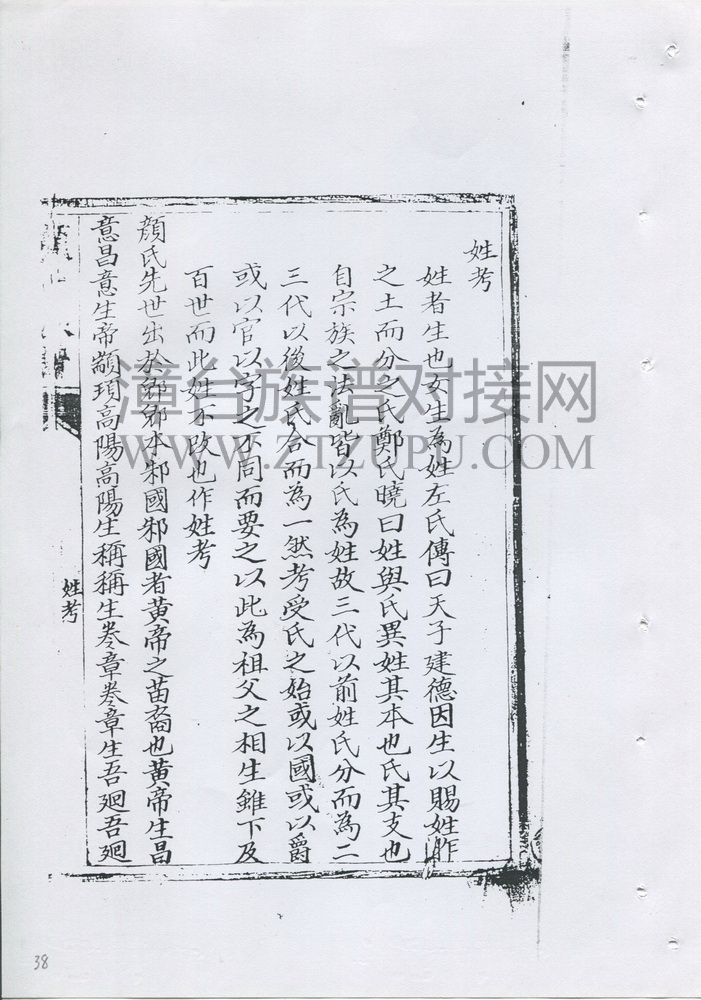 姓考
姓者生也女生為姓左氏傳曰天子建德因生以賜姓胙
之土而分之氏鄭氏曉曰姓與氏異姓其本也氏其支也
自宗族之法亂皆以氏為姓故三代以前姓氏分而為二
三代以後姓氏合而為一然考受氏之始或以國或以爵
或以官以字之不同而要之以此為祖父之相生雖下及
百世而此姓不改也作姓考
顏氏先世出於邾邾本邾國邾國者黃帝之苗裔也黃帝生昌
意昌意生帝顓頊高陽高陽生稱稱生卷章卷章生吾廻吾廻
姓考
漳台族谱对接网
WWW.ZTZUPU.COM
38